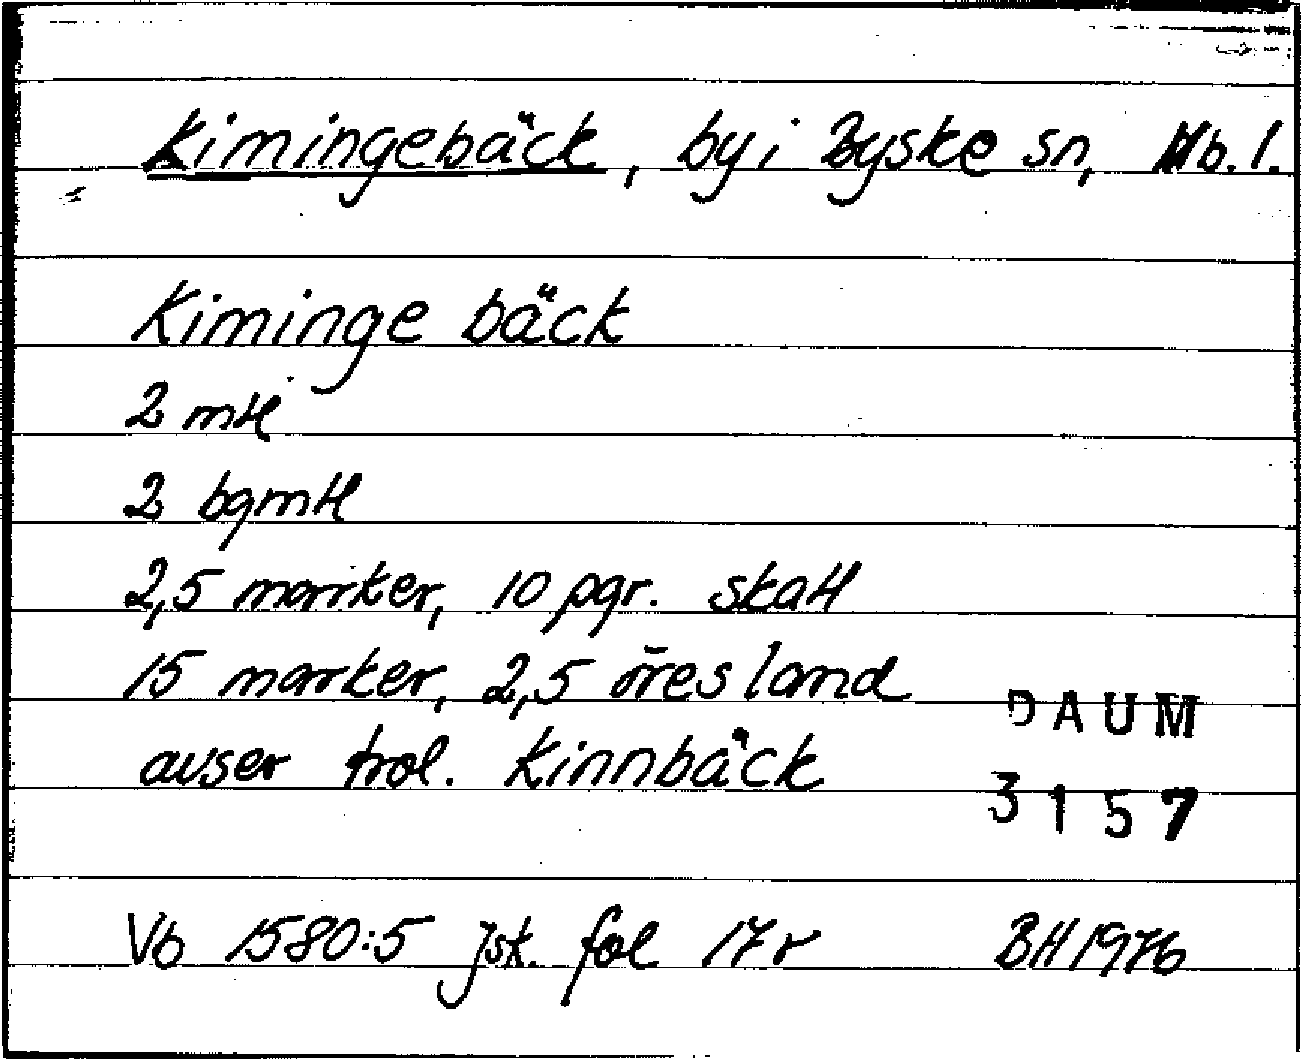 Kimingebäck, by i Byske sn, Nb. l.
Kiminge bäck
2 mtl
2 bgmtl
2,5 marker, 10 pgr. skatt
15 marker, 2,5 öresland
avser trol. Kinnbäck
DAUM
3157
Vb 1580:5 Jsk. fol 17r BH 1976